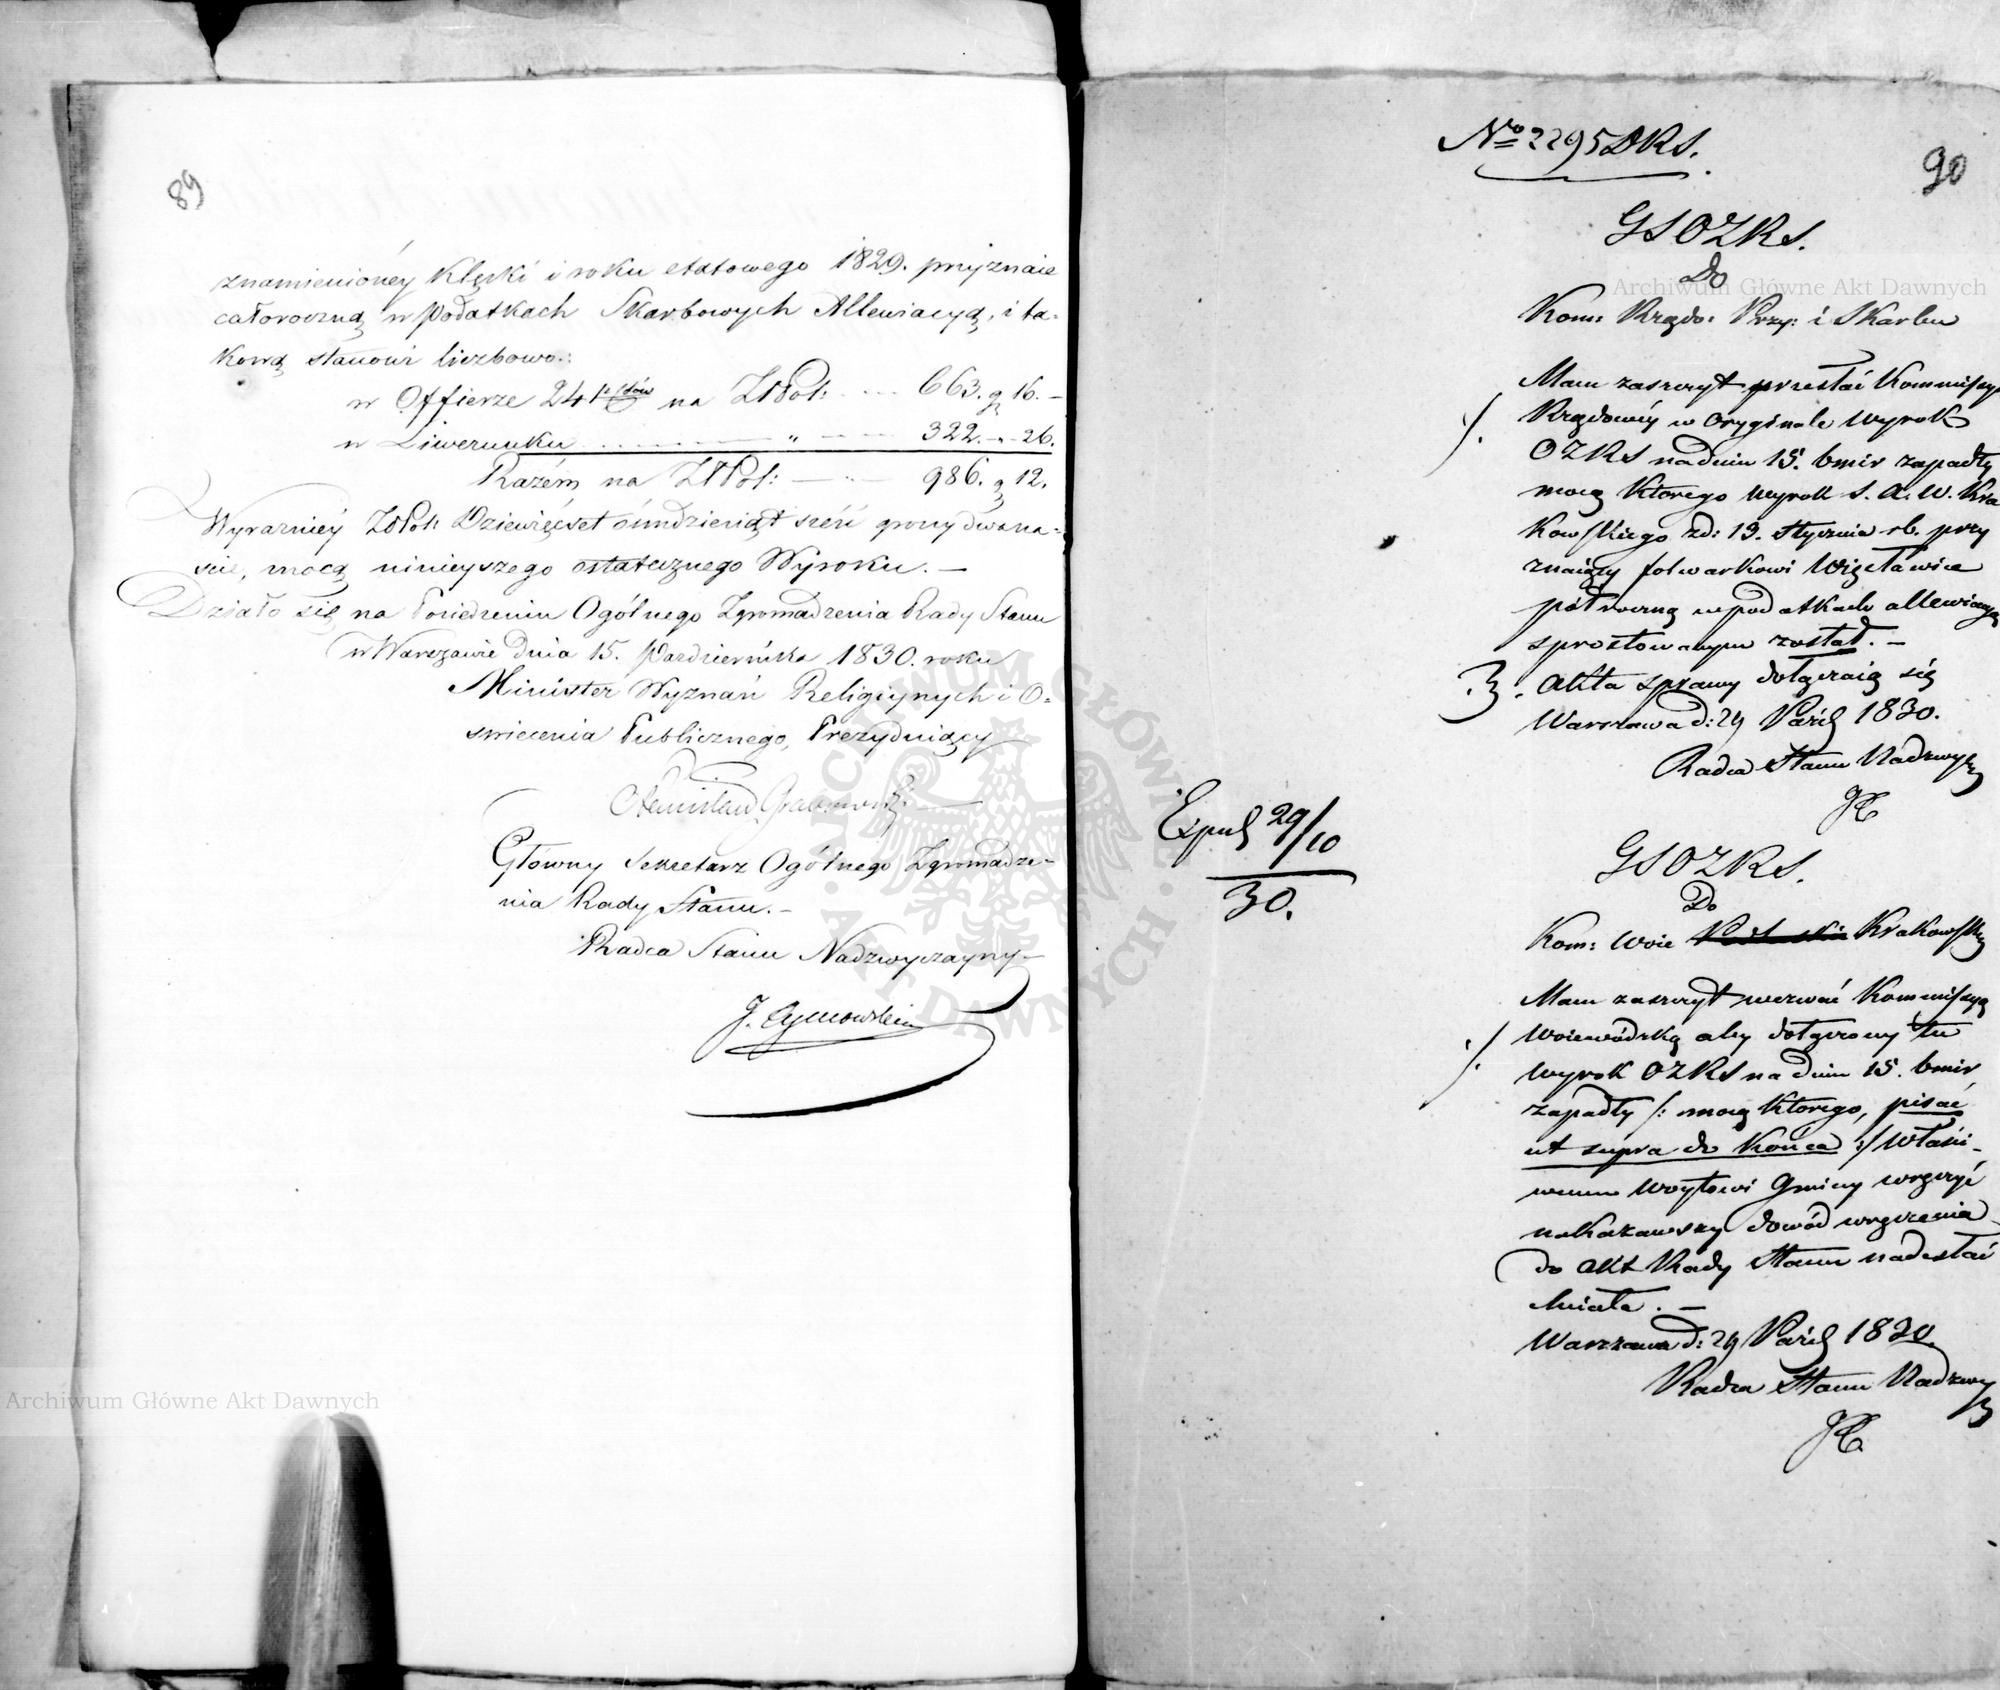 89
znamienionéy klęski i roku etatowego 1829. przyznaie
całoroczną w podatkach Skarbowych Allewiacyą, i ta-
kową stanowi liczbowo.:
w Offierze 24 na ZłPol: 663. g 16. –
w Liwerunku „ 322. „ 26.
Razém na ZłPol: 986. g 12.
Wyrazniéy ZłPol: Dziewięćset ośmdziesiąt sześć groszy dwana-
scie, mocą ninieyszego ostatecznego Wyroku. –
Działo się na Posiedzeniu Ogólnego Zgromadzenia Rady Stanu
w Warszawie dnia 15. Pazdziernika 1830. roku
Minister Wyznań Religiynych i O-
swiecenia Publicznego, Prezyduiący
Stanisław Grabowski
Główny Sekretarz Ogólnego Zgromadze-
nia Rady Stanu. –
Radca Stanu Nadzwyczayny
№ 2295 DRS.
90
GSOZRS.
Do
Kom: Rządo: Przy: i Skarbu
Mam zaszczyt przesłać Kommissyi
Rządowéy w oryginale wyrok
OZRS na dniu 15. bmir zapadły
mocą którego wyrok S. A. W. Kra
kowskiego zd: 19. stycznia rb. przy
znaiący folwarkowi
półroczną w podatkach allewiacyą
sprostowanym został. –
3. akta sprawy dołączaią się
Warszawa d: 29 Paźd 1830.
Radca Stanu Nadzwycz
JC
Exped 29/10
30.
GSOZRS.
Do
Kom: Woie Krakowskiey
Mam zaszczyt wezwać Kommissyą
Woiewódzką aby dołączony tu
wyrok OZRS na dniu 15. bmir
zapadły /: mocą którego, pisać
ut supra do końca :/ Właści-
wemu Woytowi Gminy wręczyć
nakazawszy dowód wręczenia
do akt Rady Stanu nadesłać
chciała. –
Warszawa d: 29 Paźd 1830.
Radca Stanu Nadzwycz
JC
Archiwum Główne Akt Dawnych
Archiwum Główne Akt Dawnych
ARCHIWUM GŁÓWNE AKT DAWNYCH